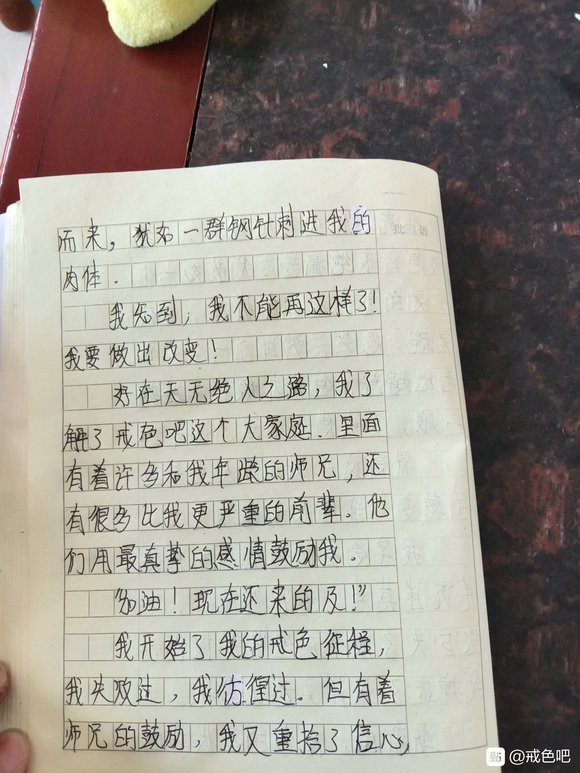 而来，犹如一群钢针刺进我的
肉体.
我知到，我不能再这样了!
我要做出改变!
好在天无绝人之路，我了
解了戒色吧这个大家庭.里面
有着许多和我年龄的师兄，还
有很多比我更严重的前辈。他
们用最真挚的感情鼓励我.
“加油!现在还来的及!”
我开始了我的戒色征程，
我失败过，我彷徨过。但有着
师兄的鼓励，我又重拾了信心，
批 语
贴 @戒色吧